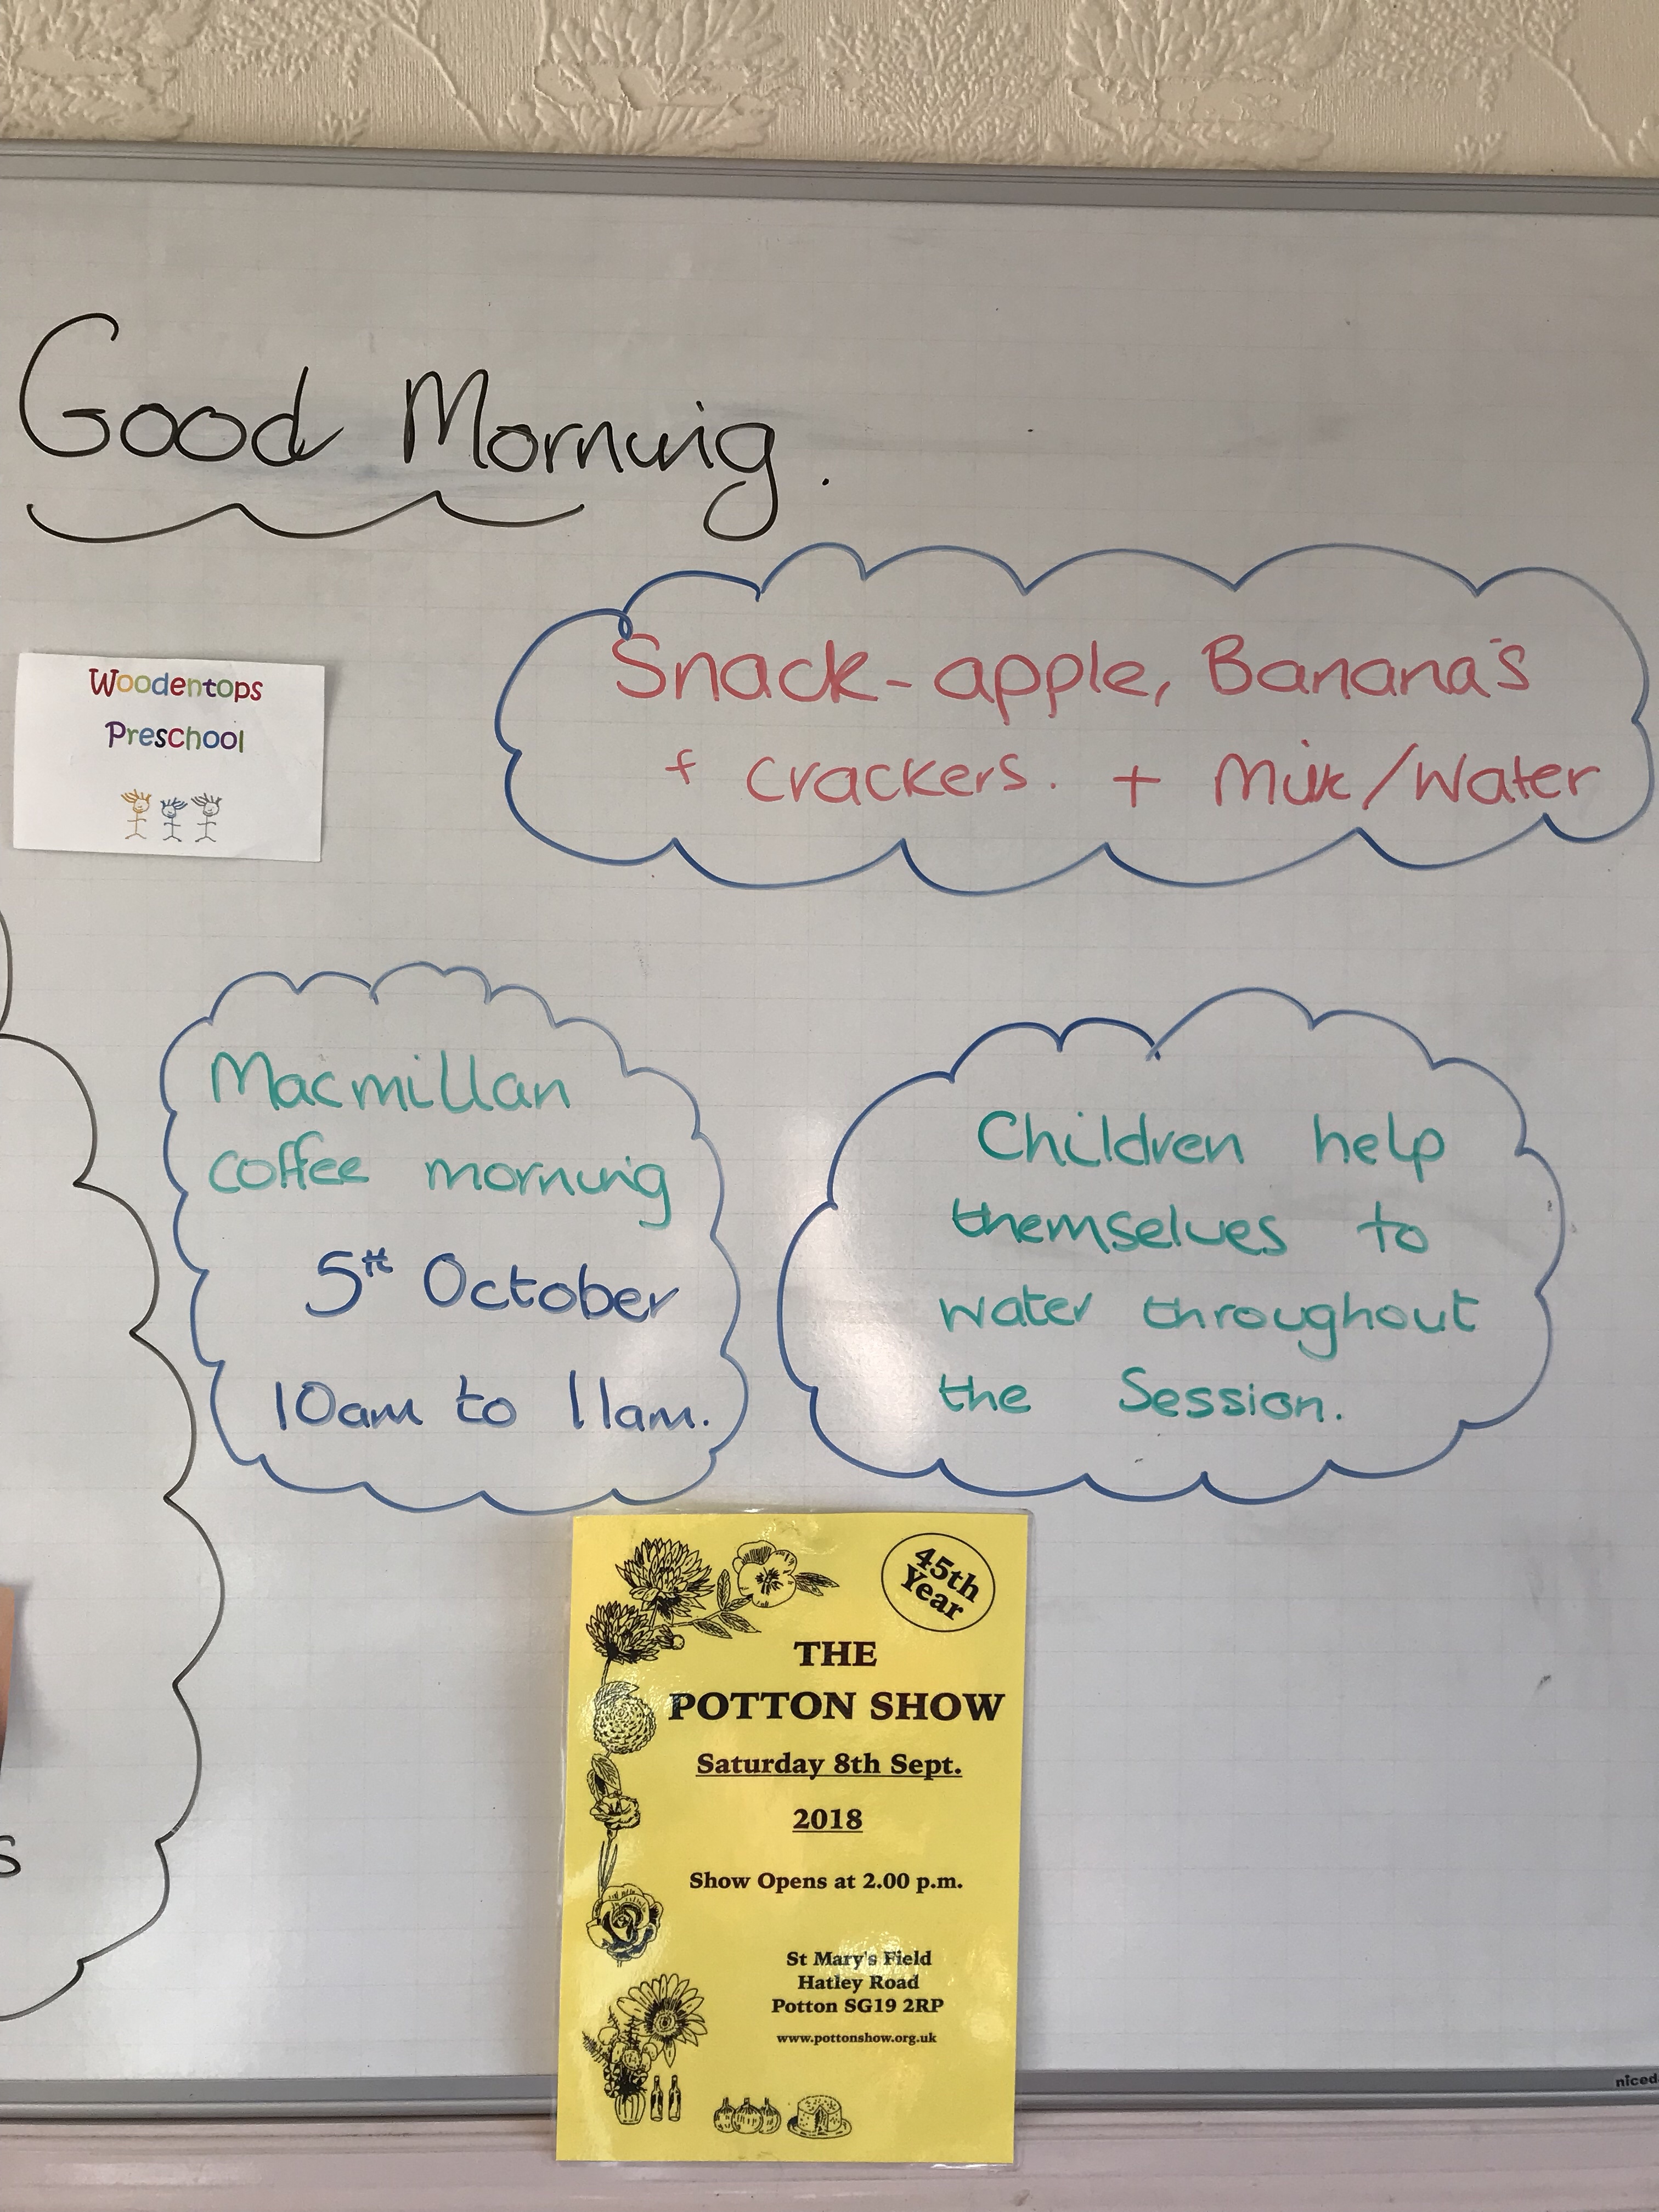 Good Morning.
Woodentops
Preschool
Snack - apple, Banana's
+ crackers. + Milk/Water
Macmillan
coffee morning
5th October
10am to 11am.
Children help
themselves to
water throughout
the Session.
s
45th
Year
THE
POTTON SHOW
Saturday 8th Sept.
2018
Show Opens at 2.00 p.m.
St Mary's Field
Hatley Road
Potton SG19 2RP
www.pottonshow.org.uk